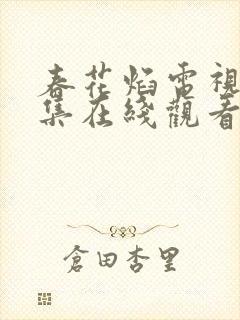 春花焰電視
集在綫觀看
倉田杏里